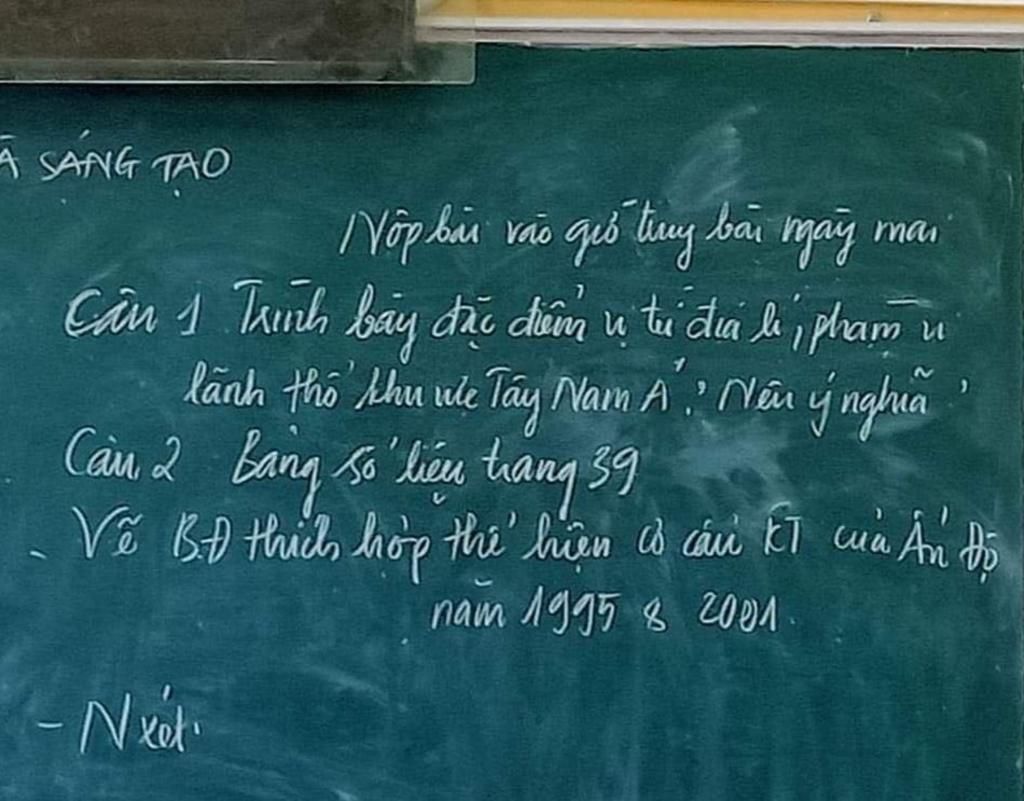 À SÁNG TẠO
Nộp bài vào giờ truy bài ngày mai
Câu 1 Trình bày đặc điểm vị trí địa lí, phạm vi
lãnh thổ khu vực Tây Nam Á? Nêu ý nghĩa?
Câu 2 Bảng số liệu trang 39
- Vẽ BĐ thích hợp thể hiện cơ cấu KT của Ấn Độ
năm 1995 & 2001.
- N xét.